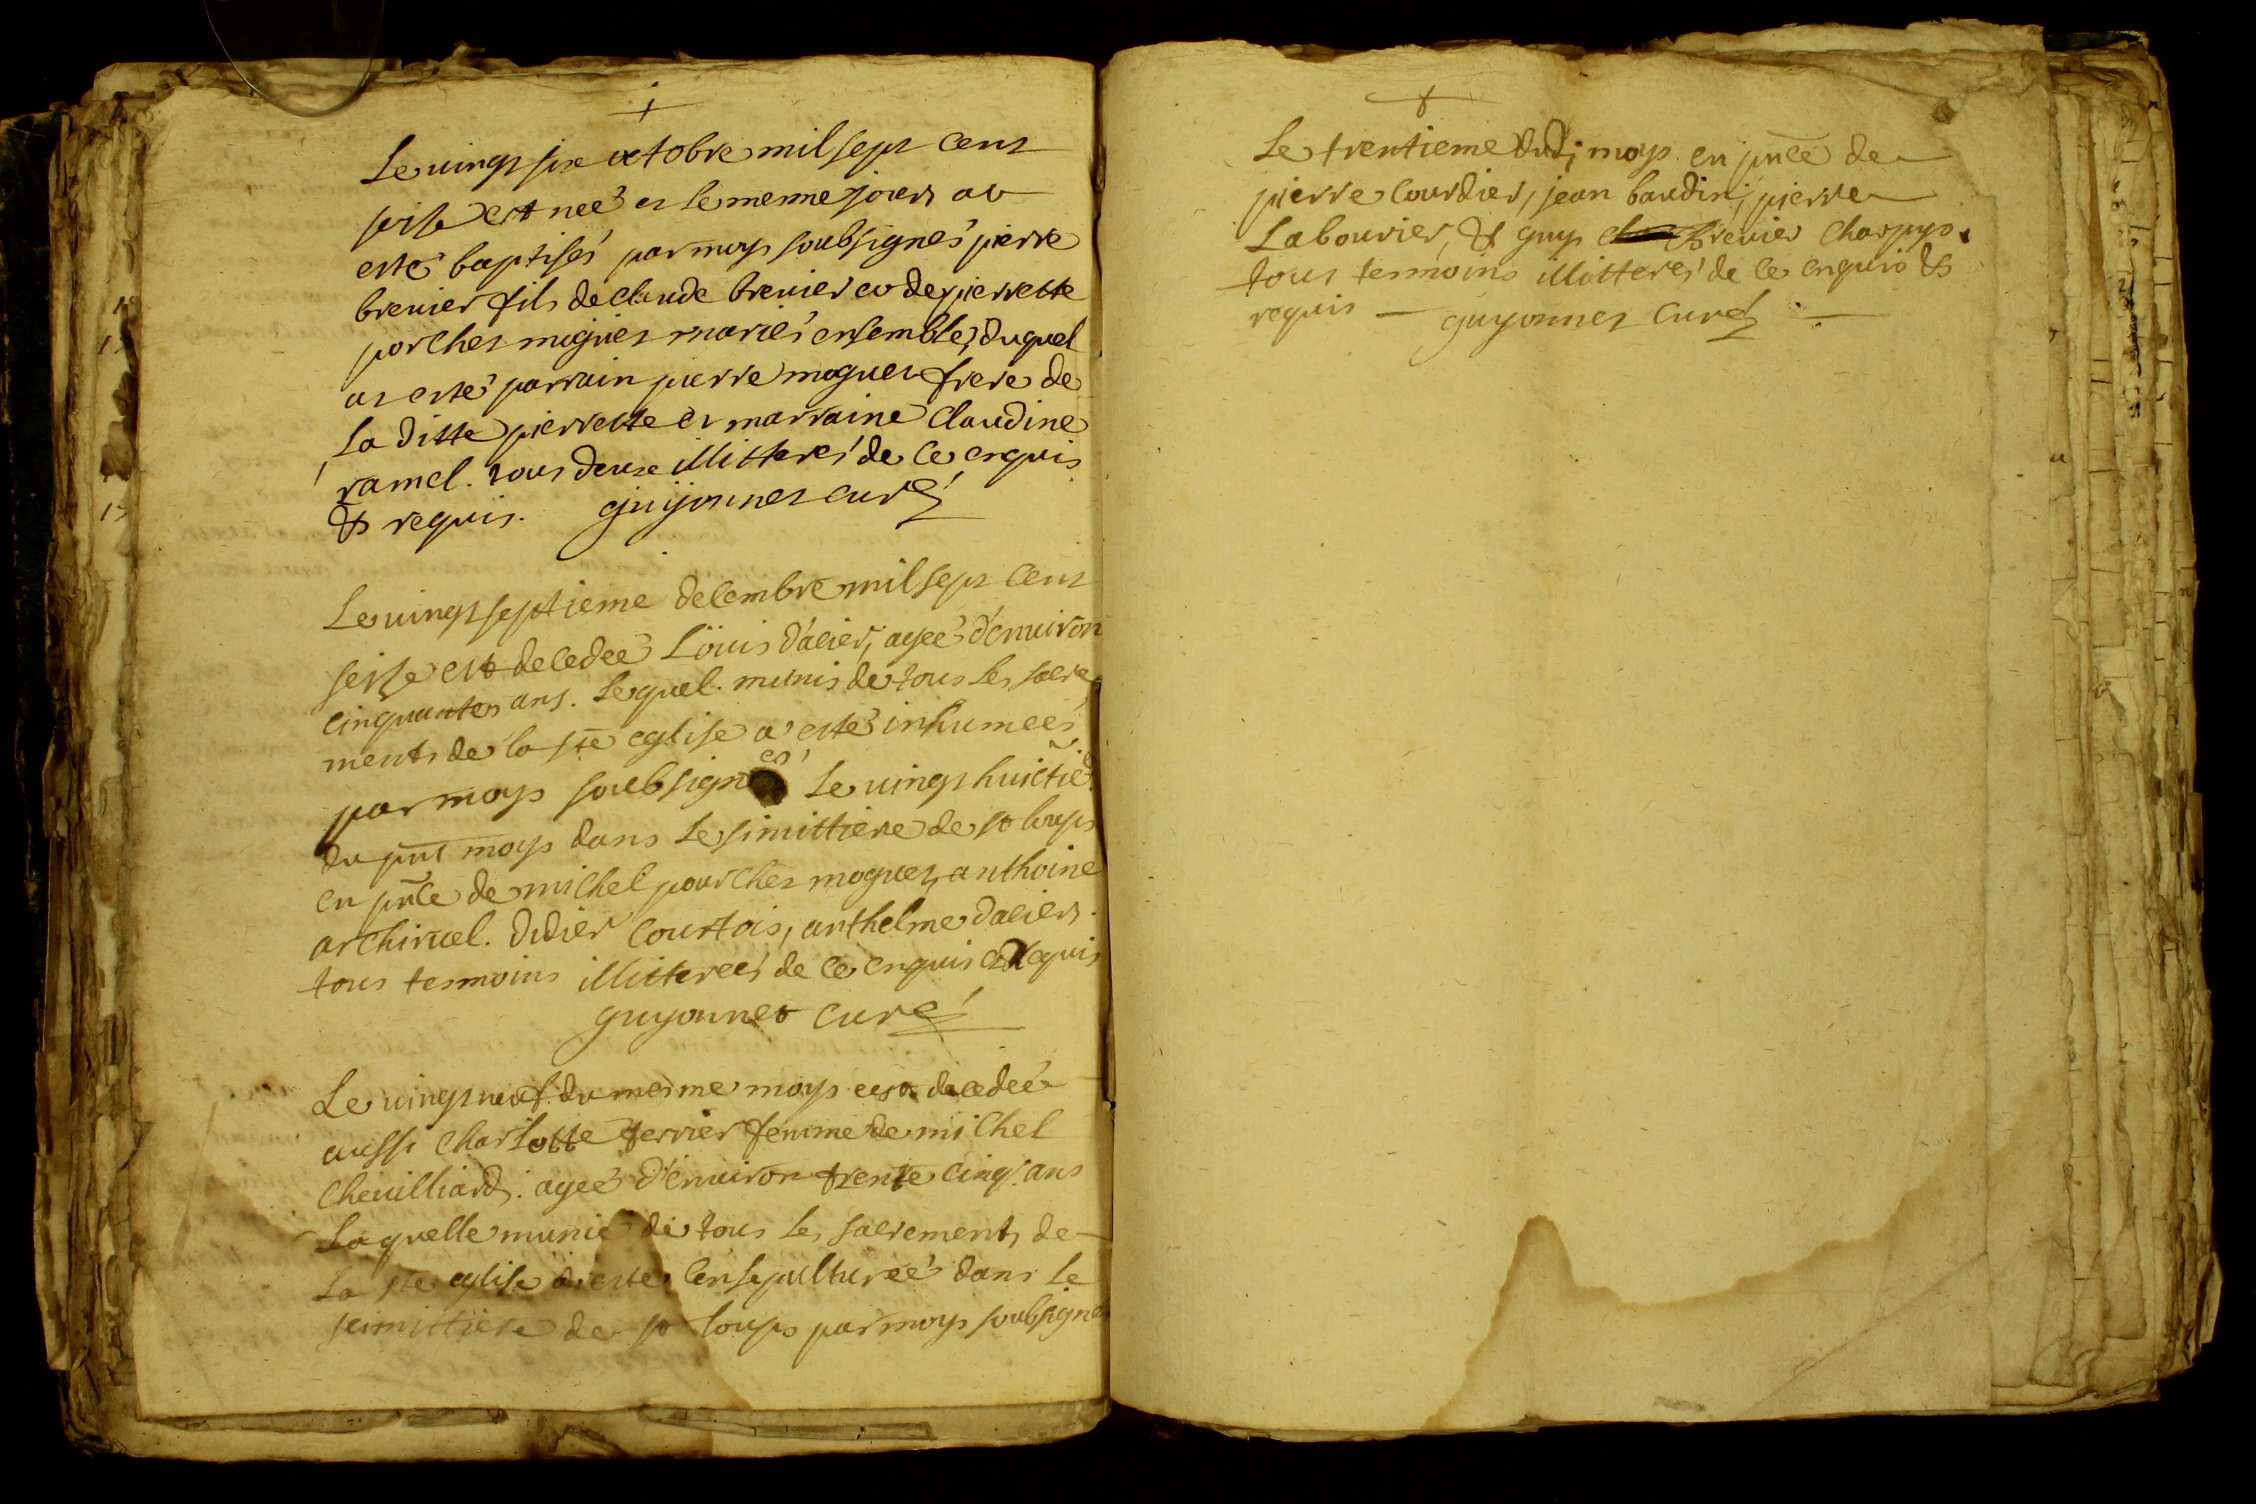 Le vingt six octobre mil sept cent
seise est neé et le meme jour at
esté baptisés par moy soubsignés pierre
brevier fils de claude brevier et de pierrette
porchet moguet mariés ensemble, duquel
at esté parrain pierre moguet frere de
la ditte pierrette et marraine Claudine
ramel. tous deux illitterés de ce enquis
& requis. guyonnet curé
Le vingt septieme decembre mil sept cent
seise est decedée Loüis dacier, ageé d'environ
cinquantes ans. Lequel munis de tous les sacre
ments de la ste eglise a esté inhumeés
par moy soubsignés Le vingt huictie
du pnt moys dans Le simittiere de st loups
en pnce de michel pourchet moguet, anthoine
archiruel. didier Courtois, anthelme dacier.
tous tesmoins illittereés de ce enquis et requis
guyonnet curé
Le vingt neuf du mesme moys est decedeé
aussi Charlotte ferrier femme de michel
Chevilliard. ageé d'environ trente cinq ans
Laquelle munie de tous les sacrements de
La ste eglise a esté ensepultureé dans le
simittiere de st loups par moy soubsigné
Le trentieme dudi moys en pnce de
pierre Courdier, jean baudin, pierre
Labourier, & guy brevier Charpyo.
tous tesmoins illitterés de ce enquis &
requis — guyonnet Curé —